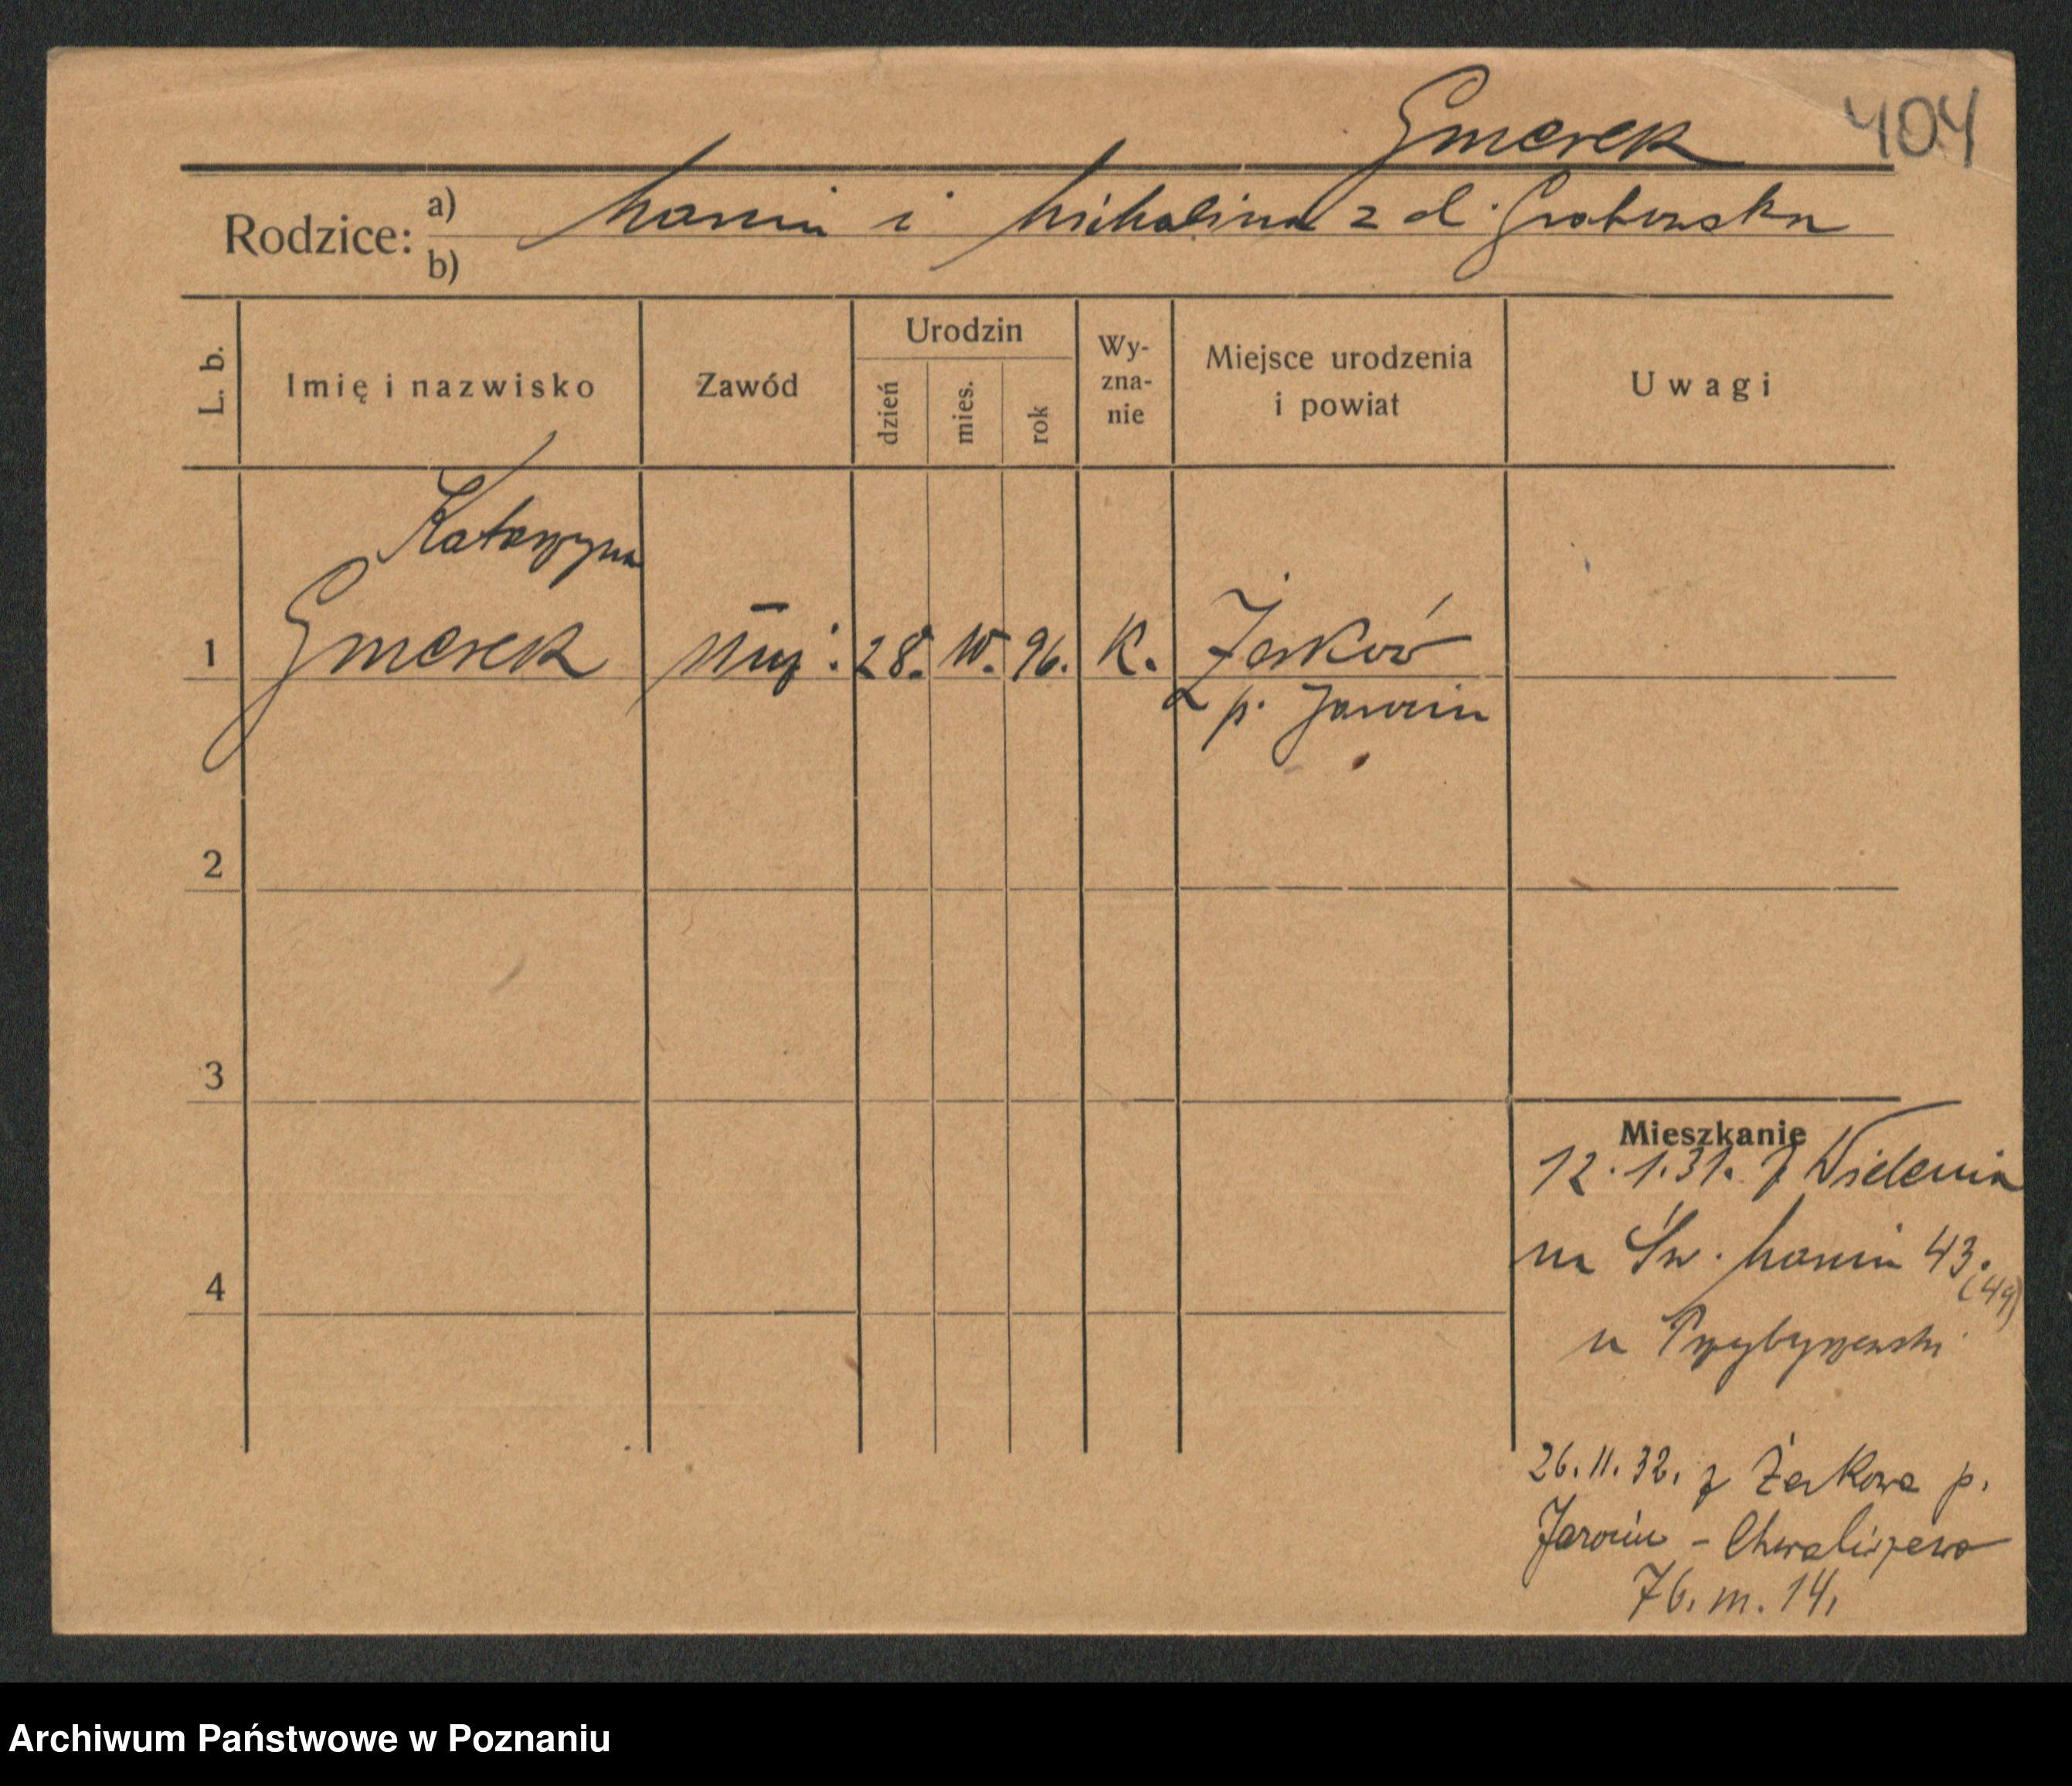 Gmerek 404
Rodzice: a) Marcin i Michalina z d. Grabowska
b)
L. b. Imię i nazwisko Zawód Urodzin dzień mies. rok Wyznanie Miejsce urodzenia i powiat Uwagi
Katarzyna
1 Gmerek służ. 28. 10. 96. K. Żerków
p. Jarocin
2
3
4
Mieszkanie
12.1.31. z Wielenia
na Św. Marcin 43.
(49)
u Przybyszewski
26.11.32. z Żerkowa p.
Jarocin - Chwaliszewo
76. m. 14.
Archiwum Państwowe w Poznaniu